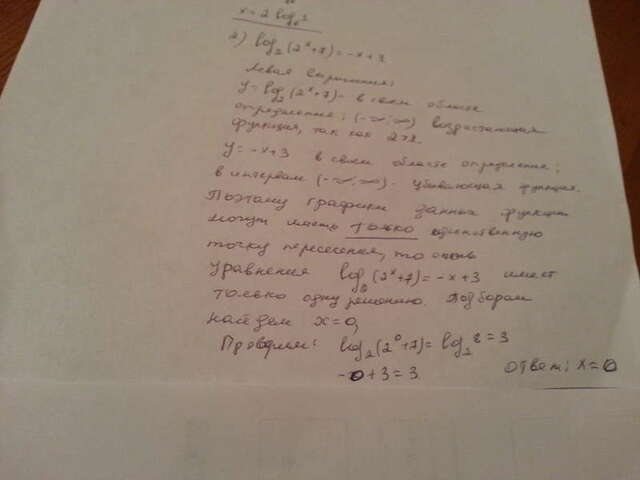 x = 2 log₆²
2) log₂(2ˣ+7) = -x+3
Левая
y = log₂(2ˣ+7) - в своей области
определения; (-∞; ∞) возрастающая
функция, так как 2>1.
y = -x+3 в своей области определения;
в интервале (-∞; ∞) - убывающая функция.
Поэтому графики данных функций
могут иметь только единственную
точку пересечения, то есть
уравнения log₂(2ˣ+7) = -x+3 имеет
только одну решению. Подбором
найдем x=0,
Проверим: log₂(2⁰+7) = log₂8 = 3
-0+3=3.
Ответ: x=0